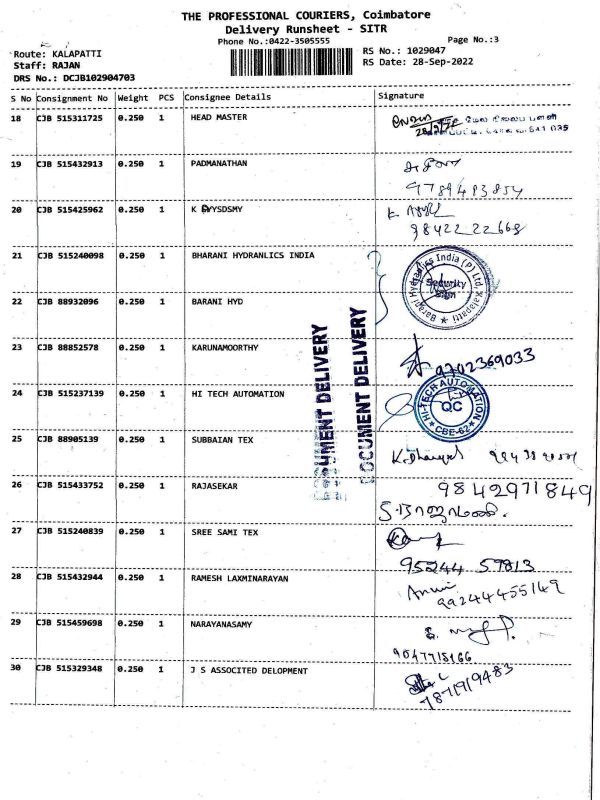 THE PROFESSIONAL COURIERS, Coimbatore
Delivery Runsheet - SITR
Phone No.:0422-3505555
Page No.:3
Route: KALAPATTI
RS No.: 1029047
Staff: RAJAN
RS Date: 28-Sep-2022
DRS No.: DCJB102904703
S No Consignment No Weight PCS Consignee Details Signature
18 CJB 515311725 0.250 1 HEAD MASTER
19 CJB 515432913 0.250 1 PADMANATHAN
9789493854
20 CJB 515425962 0.250 1 K
98422 22668
21 CJB 515240098 0.250 1 BHARANI HYDRANLICS INDIA
Barani Hydraulics India (P) Ltd. Kalapatti
Security
Sign
22 CJB 88932096 0.250 1 BARANI HYD
23 CJB 88852578 0.250 1 KARUNAMOORTHY
9702369033
24 CJB 515237139 0.250 1 HI TECH AUTOMATION
HI-TECH AUTOMATION
QC
CBE-62
DOCUMENT DELIVERY
DOCUMENT DELIVERY
25 CJB 88905139 0.250 1 SUBBAIAN TEX
26 CJB 515433752 0.250 1 RAJASEKAR
9842971849
27 CJB 515240839 0.250 1 SREE SAMI TEX
95244 59813
28 CJB 515432944 0.250 1 RAMESH LAXMINARAYAN
29 CJB 515459698 0.250 1 NARAYANASAMY
9047718166
30 CJB 515329348 0.250 1 J S ASSOCITED DELOPMENT
7871919483